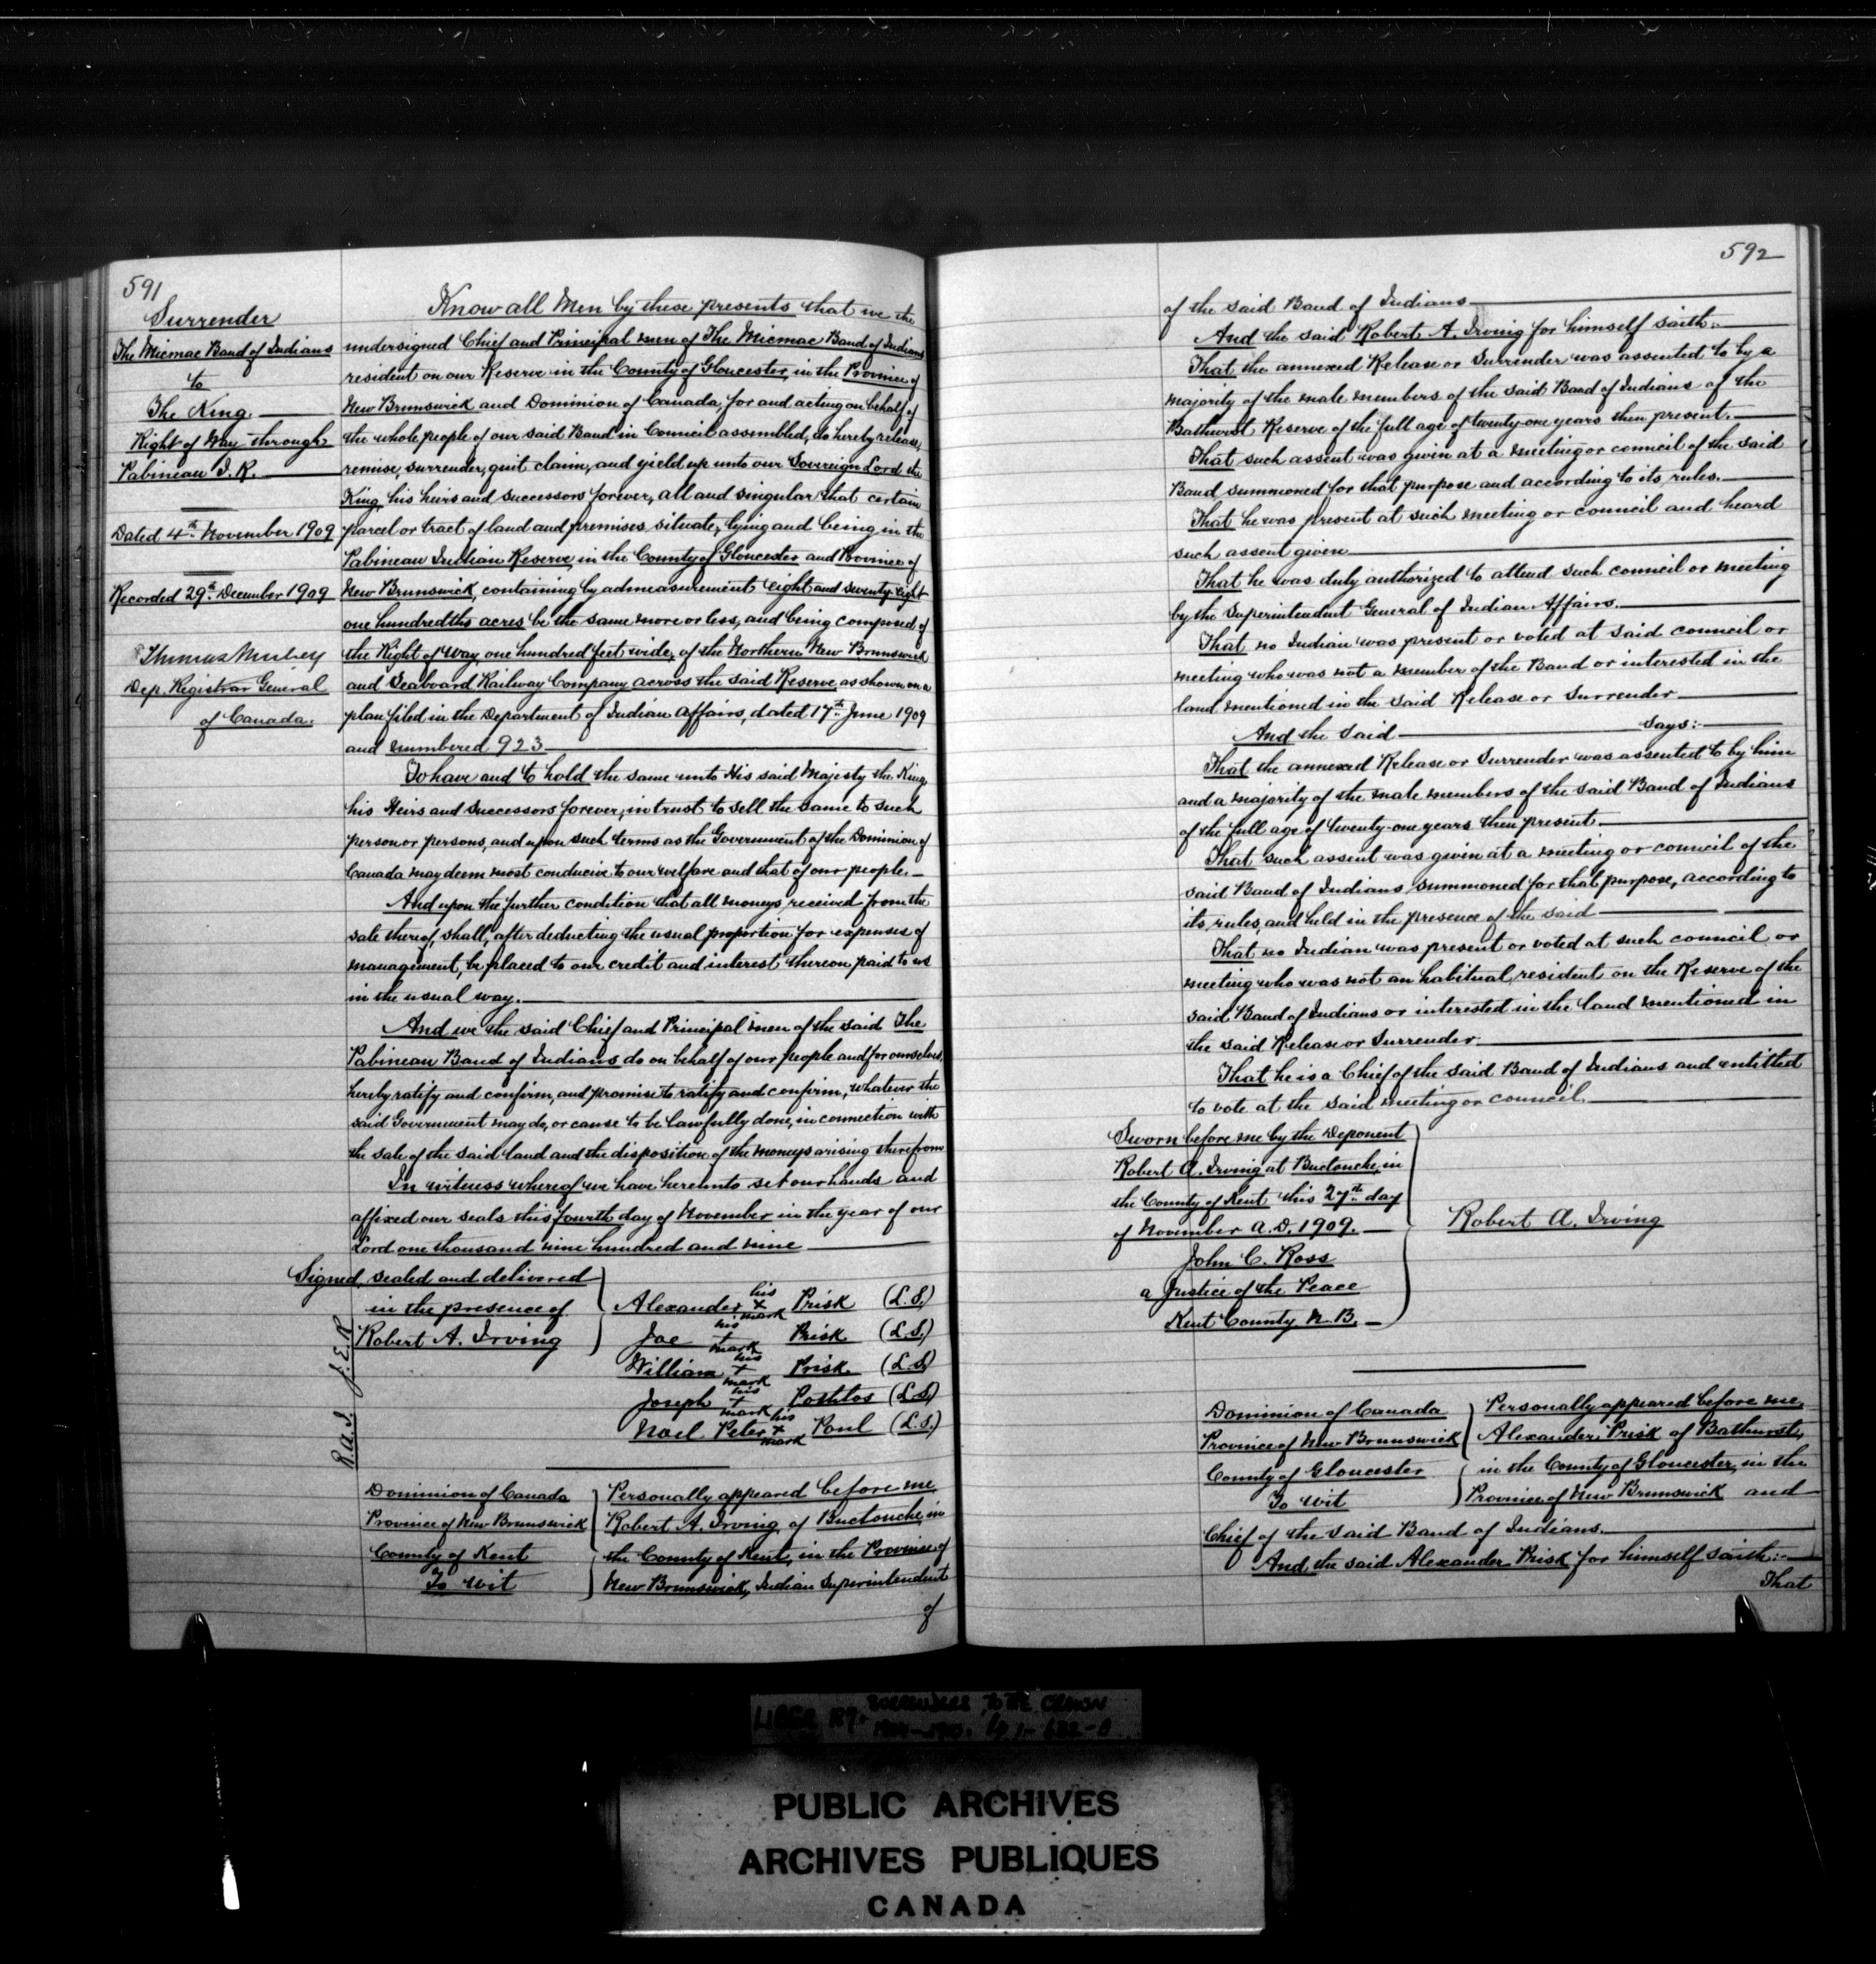 591
Surrender
The Micmac Band of Indians
to
The King.
Right of Way through
Pabineau I. R.
Dated 4th November 1909
Recorded 29th December 1909
Thomas Mulvey
Dep. Registrar General
of Canada.
Know all Men by these presents that we the
undersigned Chief and Principal men of The Micmac Band of Indians
resident on our Reserve in the County of Gloucester, in the Province of
New Brunswick and Dominion of Canada, for and acting on behalf of
the whole people of our said Band in Council assembled, do hereby release,
remise, surrender, quit claim, and yield up unto our Sovereign Lord the
King, his heirs and successors forever, all and singular that certain
parcel or tract of land and premises situate, lying and being in the
Pabineau Indian Reserve, in the County of Gloucester and Province of
New Brunswick, containing by admeasurement eight and seventy-eight
one hundredths acres be the same more or less, and being composed of
the Right of Way, one hundred feet wide, of the Northern New Brunswick
and Seaboard Railway Company across the said Reserve, as shown on a
plan filed in the Department of Indian Affairs, dated 17th June 1909
and numbered 923
To have and to hold the same unto His said Majesty the King,
his Heirs and Successors forever, in trust to sell the same to such
person or persons, and upon such terms as the Government of the Dominion of
Canada may deem most conducive to our welfare and that of our people.
And upon the further condition that all moneys received from the
sale thereof, shall, after deducting the usual proportion for expenses of
management, be placed to our credit and interest thereon paid to us
in the usual way.
And we the said Chief and Principal men of the said The
Pabineau Band of Indians do on behalf of our people and for ourselves,
hereby ratify and confirm, and promise to ratify and confirm, whatever the
said Government may do, or cause to be lawfully done, in connection with
the sale of the said land and the disposition of the moneys arising therefrom
In witness whereof we have hereunto set our hands and
affixed our seals this fourth day of November in the year of our
Lord one thousand nine hundred and nine
Signed, sealed and delivered
in the presence of
Robert A. Irving
R.A.I. J.E.R.
Alexander his + mark Prisk (L.S.)
Joe his + mark Prisk (L.S.)
William his + mark Prisk (L.S.)
Joseph his + mark Poshtos (L.S.)
Noel Peter his + mark Paul (L.S.)
Dominion of Canada
Province of New Brunswick
County of Kent
To wit
Personally appeared before me
Robert A. Irving of Buctouche, in
the County of Kent, in the Province of
New Brunswick, Indian Superintendent
of
592
of the said Band of Indians
And the said Robert A. Irving for himself saith:
That the annexed Release or Surrender was assented to by a
majority of the male members of the said Band of Indians of the
Bathurst Reserve of the full age of twenty-one years then present.
That such assent was given at a meeting or council of the said
Band summoned for that purpose and according to its rules.
That he was present at such meeting or council and heard
such assent given
That he was duly authorized to attend such council or meeting
by the Superintendent General of Indian Affairs.
That no Indian was present or voted at said council or
meeting who was not a member of the Band or interested in the
land mentioned in the said Release or Surrender
And the said says:
That the annexed Release or Surrender was assented to by him
and a majority of the male members of the said Band of Indians
of the full age of twenty-one years then present
That such assent was given at a meeting or council of the
said Band of Indians, summoned for that purpose, according to
its rules, and held in the presence of the said
That no Indian was present or voted at such council or
meeting who was not an habitual resident on the Reserve of the
said Band of Indians or interested in the land mentioned in
the said Release or Surrender.
That he is a Chief of the said Band of Indians and entitled
to vote at the said meeting or council.
Sworn before me by the Deponent
Robert A. Irving at Buctouche, in
the County of Kent this 27th day
of November A.D. 1909.
John C. Ross
a Justice of the Peace
Kent County N.B.
Robert A. Irving
Dominion of Canada
Province of New Brunswick
County of Gloucester
To wit
Personally appeared before me,
Alexander Prisk of Bathurst,
in the County of Gloucester, in the
Province of New Brunswick and
Chief of the said Band of Indians.
And the said Alexander Prisk for himself saith:
That
SURRENDERS TO THE CROWN
PUBLIC ARCHIVES
ARCHIVES PUBLIQUES
CANADA